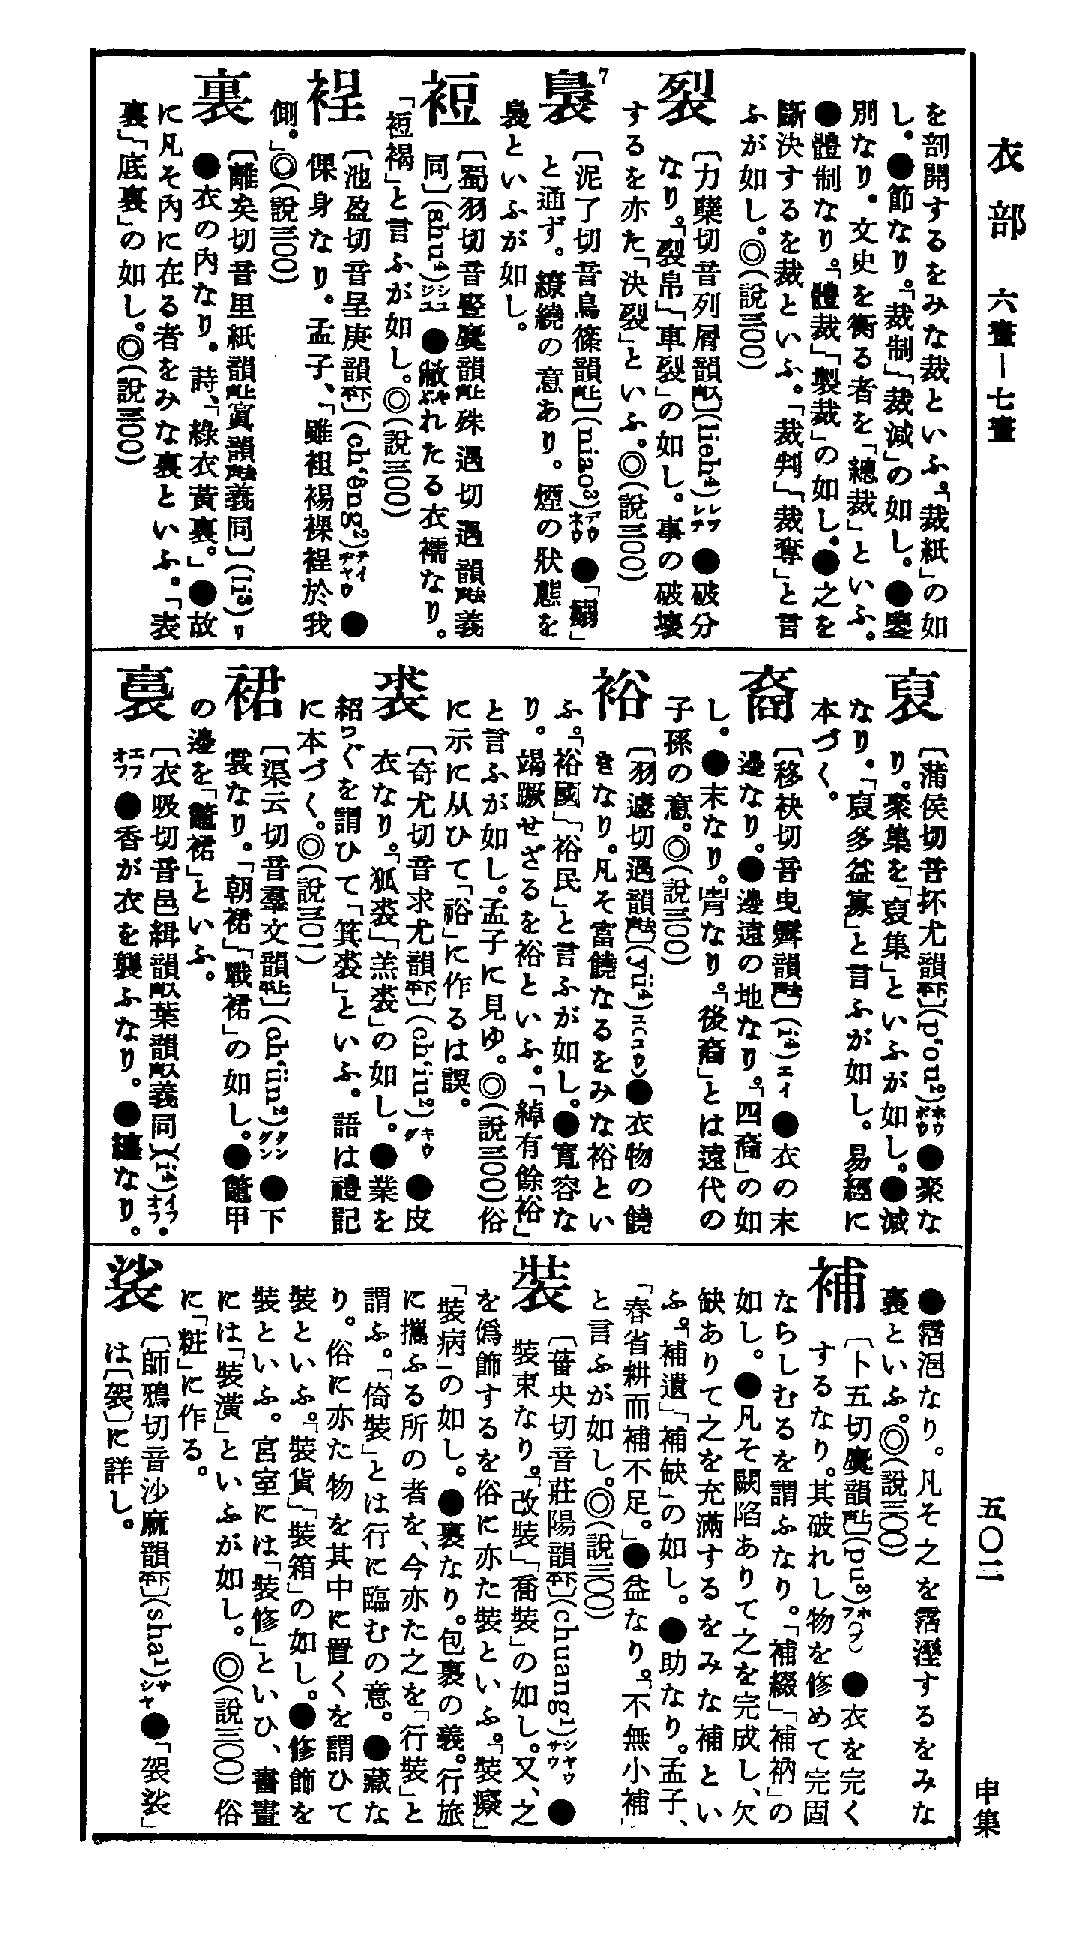 衣部 六畫—七畫
五〇二
申集
を剖開するをみな裁といふ。「裁紙」の如
し。●節なり。「裁制」「裁減」の如し。●鑒
別なり。文史を衡る者を「總裁」といふ。
●體制なり。「體裁」「製裁」の如し。●之を
斷決するを裁といふ。「裁判」「裁奪」と言
ふが如し。◎(說三〇〇)
裂 〔力櫱切音列屑韻入聲〕(lieh⁴)レツ レチ ●破分
なり。「裂帛」「車裂」の如し。事の破壞
するを亦た「決裂」といふ。◎(說三〇〇)
7
裊 〔泥了切音鳥篠韻上聲〕(niao³)デウ ネウ ●「嫋」
と通ず。繚繞の意あり。煙の狀態を
裊といふが如し。
裋 〔蜀羽切音豎麌韻上聲殊遇切遇韻去聲義
同〕(shu⁴)シユ ジユ ●敝れたる衣襦なり。
「裋褐」と言ふが如し。◎(說三〇〇)
裎 〔池盈切音呈庚韻下平〕(ch‘êng²)テイ チヤウ ●
倮身なり。孟子、「雖袒裼裸裎於我
側。」◎(說三〇〇)
裏 〔離矣切音里紙韻上聲寘韻去聲義同〕(li³)リ
●衣の內なり。詩、「綠衣黃裏。」●故
に凡そ內に在る者をみな裏といふ。「表
裏」「底裏」の如し。◎(說三〇〇)
裒 〔蒲侯切音抔尤韻下平〕(p‘ou²)ホウ ボウ ●聚な
り。聚集を「裒集」といふが如し。●減
なり。「裒多益寡」と言ふが如し。易經に
本づく。
裔 〔移袂切音曳霽韻去聲〕(i⁴)エイ ●衣の末
邊なり。●邊遠の地なり。「四裔」の如
し。●末なり。冑なり。「後裔」とは遠代の
子孫の意。◎(說三〇〇)
裕 〔羽遽切遇韻去聲〕(yü⁴)ユ(ユウ)●衣物の饒
きなり。凡そ富饒なるをみな裕とい
ふ。「裕國」「裕民」と言ふが如し。●寬容な
り。竭蹶せざるを裕といふ。「綽有餘裕」
と言ふが如し。孟子に見ゆ。◎(說三〇〇)俗
に示に从ひて「𥙿」に作るは誤。
裘 〔奇尤切音求尤韻下平〕(ch‘iu²)キウ グ ●皮
衣なり。「狐裘」「羔裘」の如し。●業を
紹つぐを謂ひて「箕裘」といふ。語は禮記
に本づく。◎(說三〇一)
裙 〔渠云切音羣文韻上平〕(ch‘ün²)クン グン ●下
裳なり。「朝裙」「戰裙」の如し。●鼈甲
の邊を「鼈裙」といふ。
裛 〔衣吸切音邑緝韻入聲葉韻入聲義同〕(i⁴)イフ・オフ
エフ オフ ●香が衣を襲ふなり。●纏なり。
●霑浥なり。凡そ之を霑溼するをみな
裛といふ。◎(說三〇〇)
補 〔卜五切麌韻上聲〕(pu³)ホ フ(フ) ●衣を完く
するなり。其破れし物を修めて完固
ならしむるを謂ふなり。「補綴」「補衲」の
如し。●凡そ闕陷ありて之を完成し、欠
缺ありて之を充滿するをみな補とい
ふ。「補遺」「補缺」の如し。●助なり。孟子、
「春省耕而補不足。」●益なり。「不無小補」
と言ふが如し。◎(說三〇〇)
裝 〔菑央切音莊陽韻下平〕(chuang¹)シヤウ サウ ●
裝束なり。「改裝」「喬裝」の如し。又、之
を僞飾するを俗に亦た裝といふ。「裝癡」
「裝病」の如し。●裹なり。包裹の義。行旅
に攜ふる所の者を、今亦た之を「行裝」と
謂ふ。「倚裝」とは行に臨むの意。●藏な
り。俗に亦た物を其中に置くを謂ひて
裝といふ。「裝貨」「裝箱」の如し。●修飾を
裝といふ。宮室には「裝修」といひ、書畫
には「裝潢」といふが如し。◎(說三〇〇)俗
に「粧」に作る。
裟 〔師鴉切音沙麻韻下平〕(sha¹)サ シヤ ●「袈裟」
は〔袈〕に詳し。